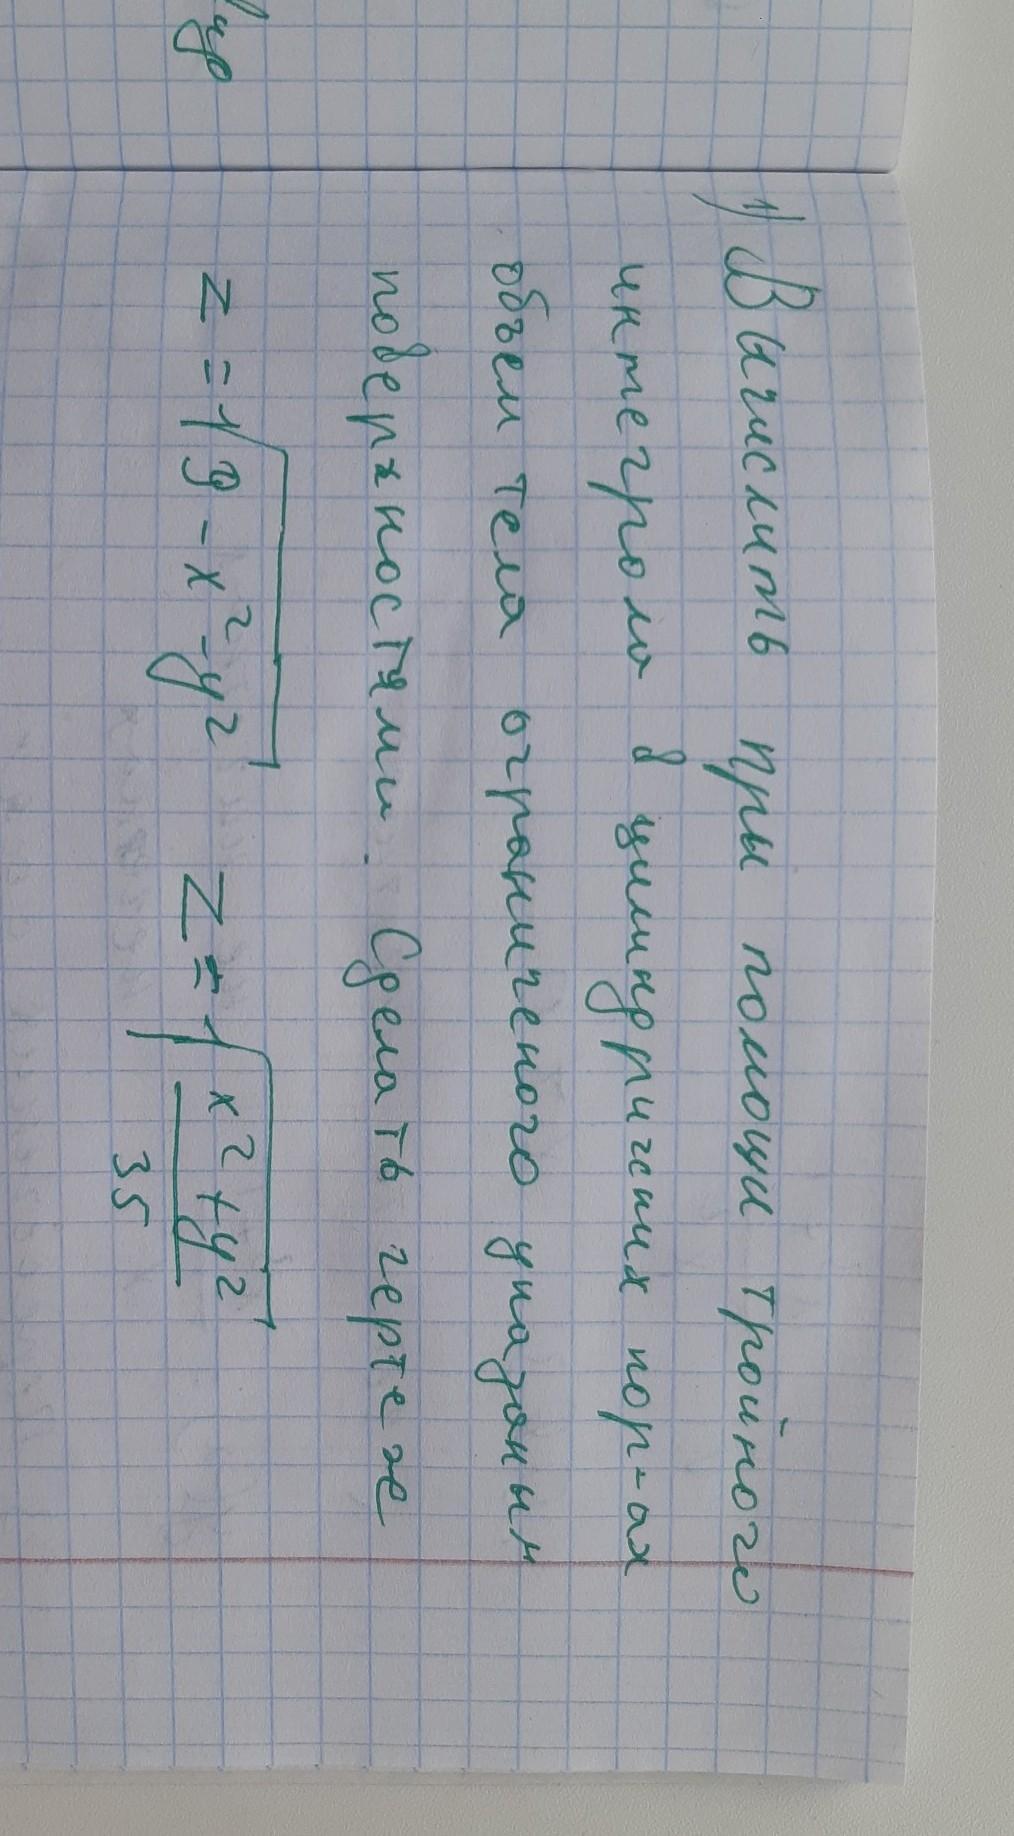 1) Вычислить при помощи тройного
интеграла в цилиндрических кор-ах
объем тела ограниченого указаным
поверхностями. Сделать чертеж
z = √9 - x² - y² z = √x² + y² / 35